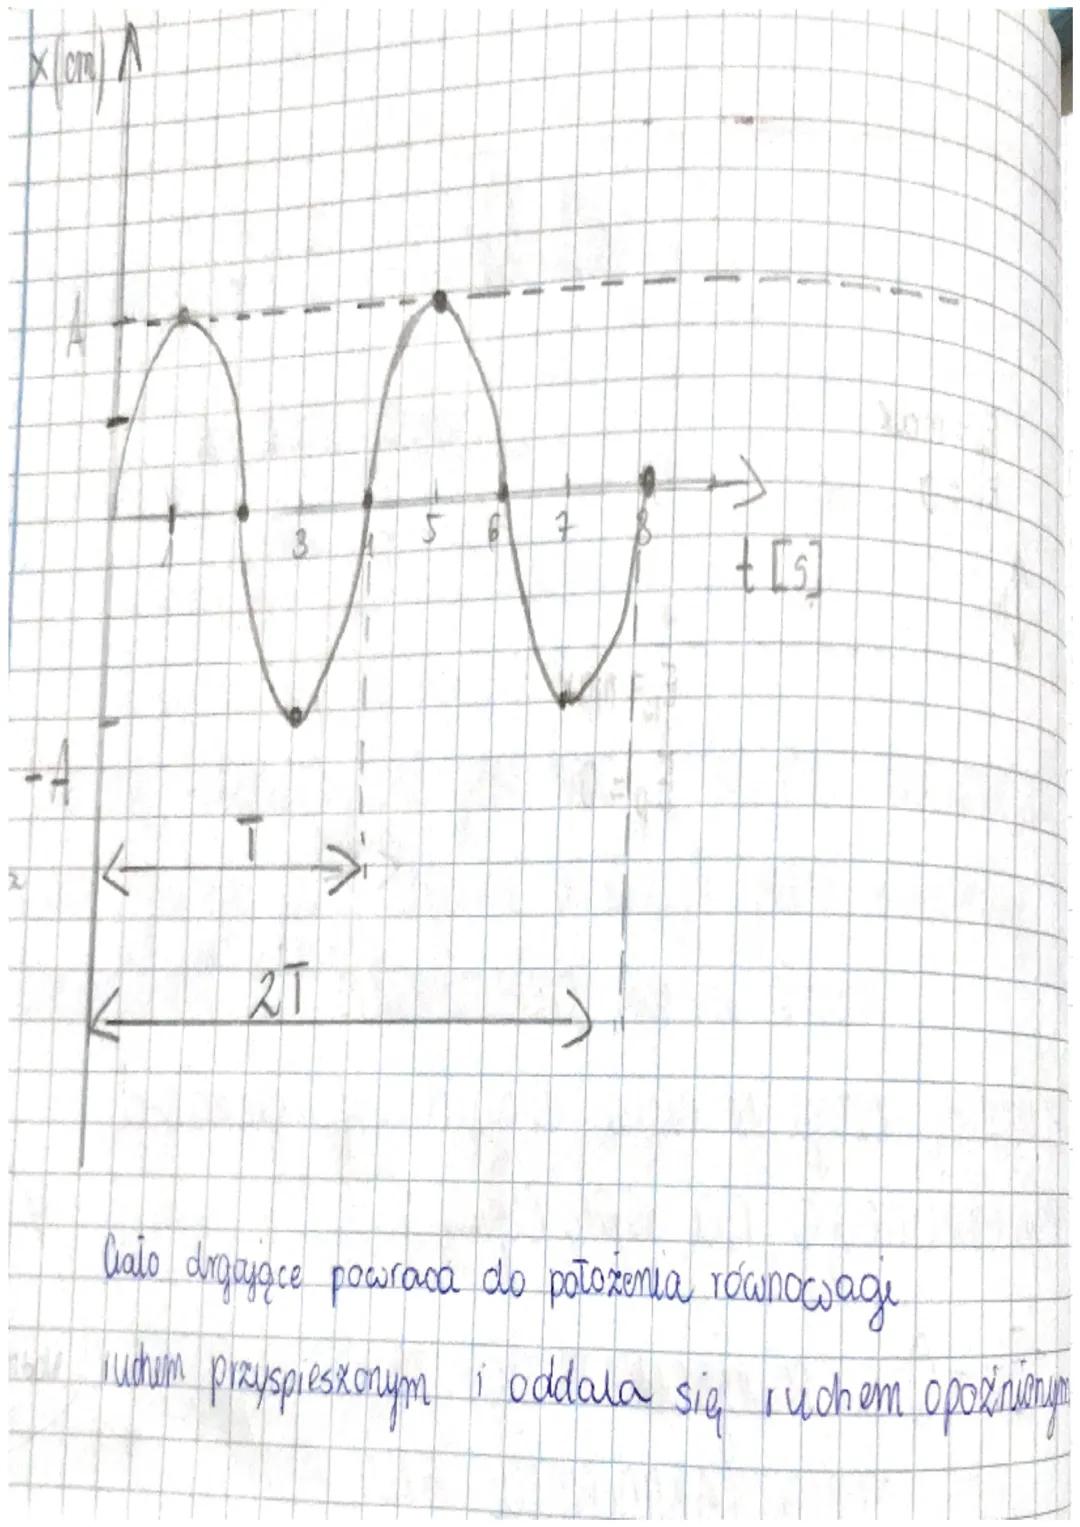 x(cm)
A
1 3 4 5 6 7 8
t [s]
-A
T
2T
Ciało drgające powraca do położenia równowagi
ruchem przyspieszonym i oddala się ruchem opoźnionym